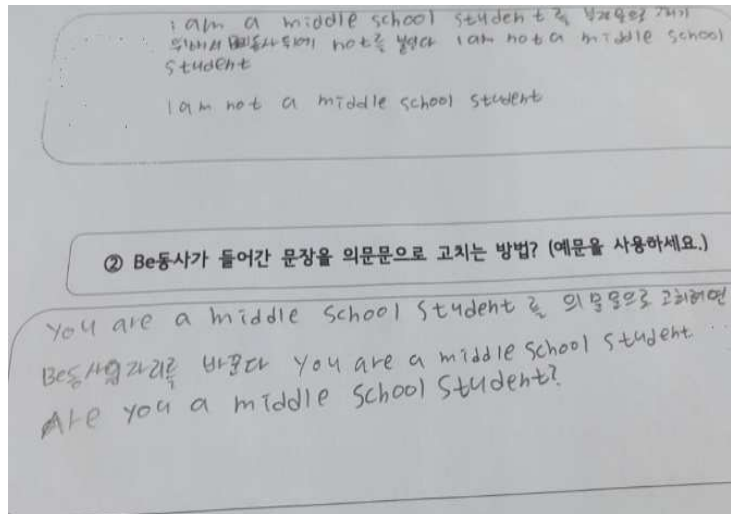 i am a middle school student를 부정문으로 고치기
위해서 Be동사 뒤에 not를 붙인다 i am not a middle school
student
I am not a middle school student
② Be동사가 들어간 문장을 의문문으로 고치는 방법? (예문을 사용하세요.)
You are a middle school student 를 의문문으로 고치려면
Be동사 자리를 바꾼다 You are a middle school student
Are you a middle school student?